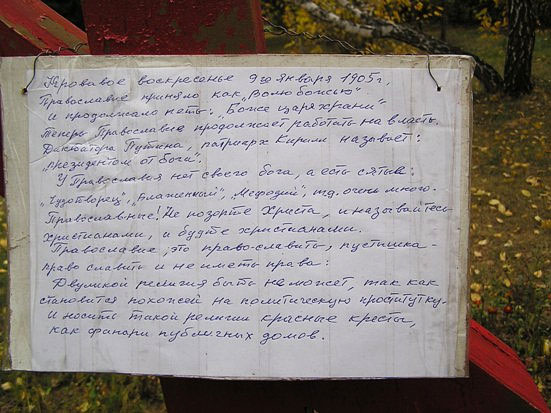 Кровавое воскресенье 9го января 1905г.
Православие приняло как „Волю божью".
и продолжало петь: „Боже царя храни"
Теперь Православие продолжает работать на власть.
Диктатора Путина, патриарх Кирилл называет:
„президентом от бога".
У Православия нет своего бога, а есть святые:
„Чудотворец", „Блаженный", „Мефодий", итд. очень много.
Православные! Не позорте Христа, и называйтесь
христианами, и будте христианами.
Православие, это право-славить, пустышка-
право славить и не иметь права:
Двуликой религия быть не может, так как
становится похожей на политическую проститутку.
И носить такой религии красные кресты,
как фонари публичных домов.